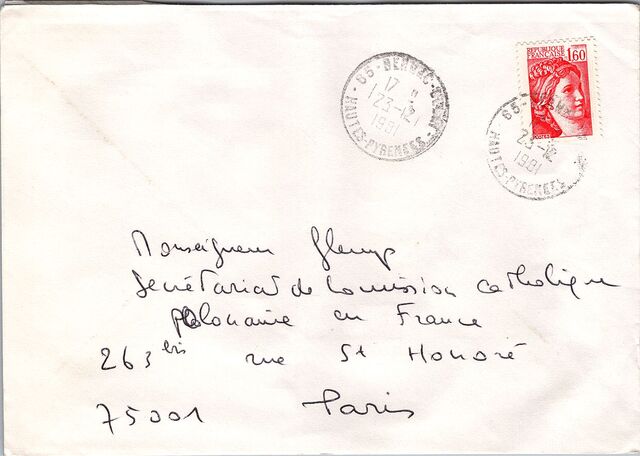 RÉPUBLIQUE FRANÇAISE 1,60
POSTES
65 - BÉNAC
17 H
23-12
1981
HAUTES-PYRENEES
65
23-12
1981
HAUTES-PYRENEES
Monseigneur Glemp
Secrétariat de la mission catholique
polonaise en France
263 bis rue St Honoré
75001 Paris